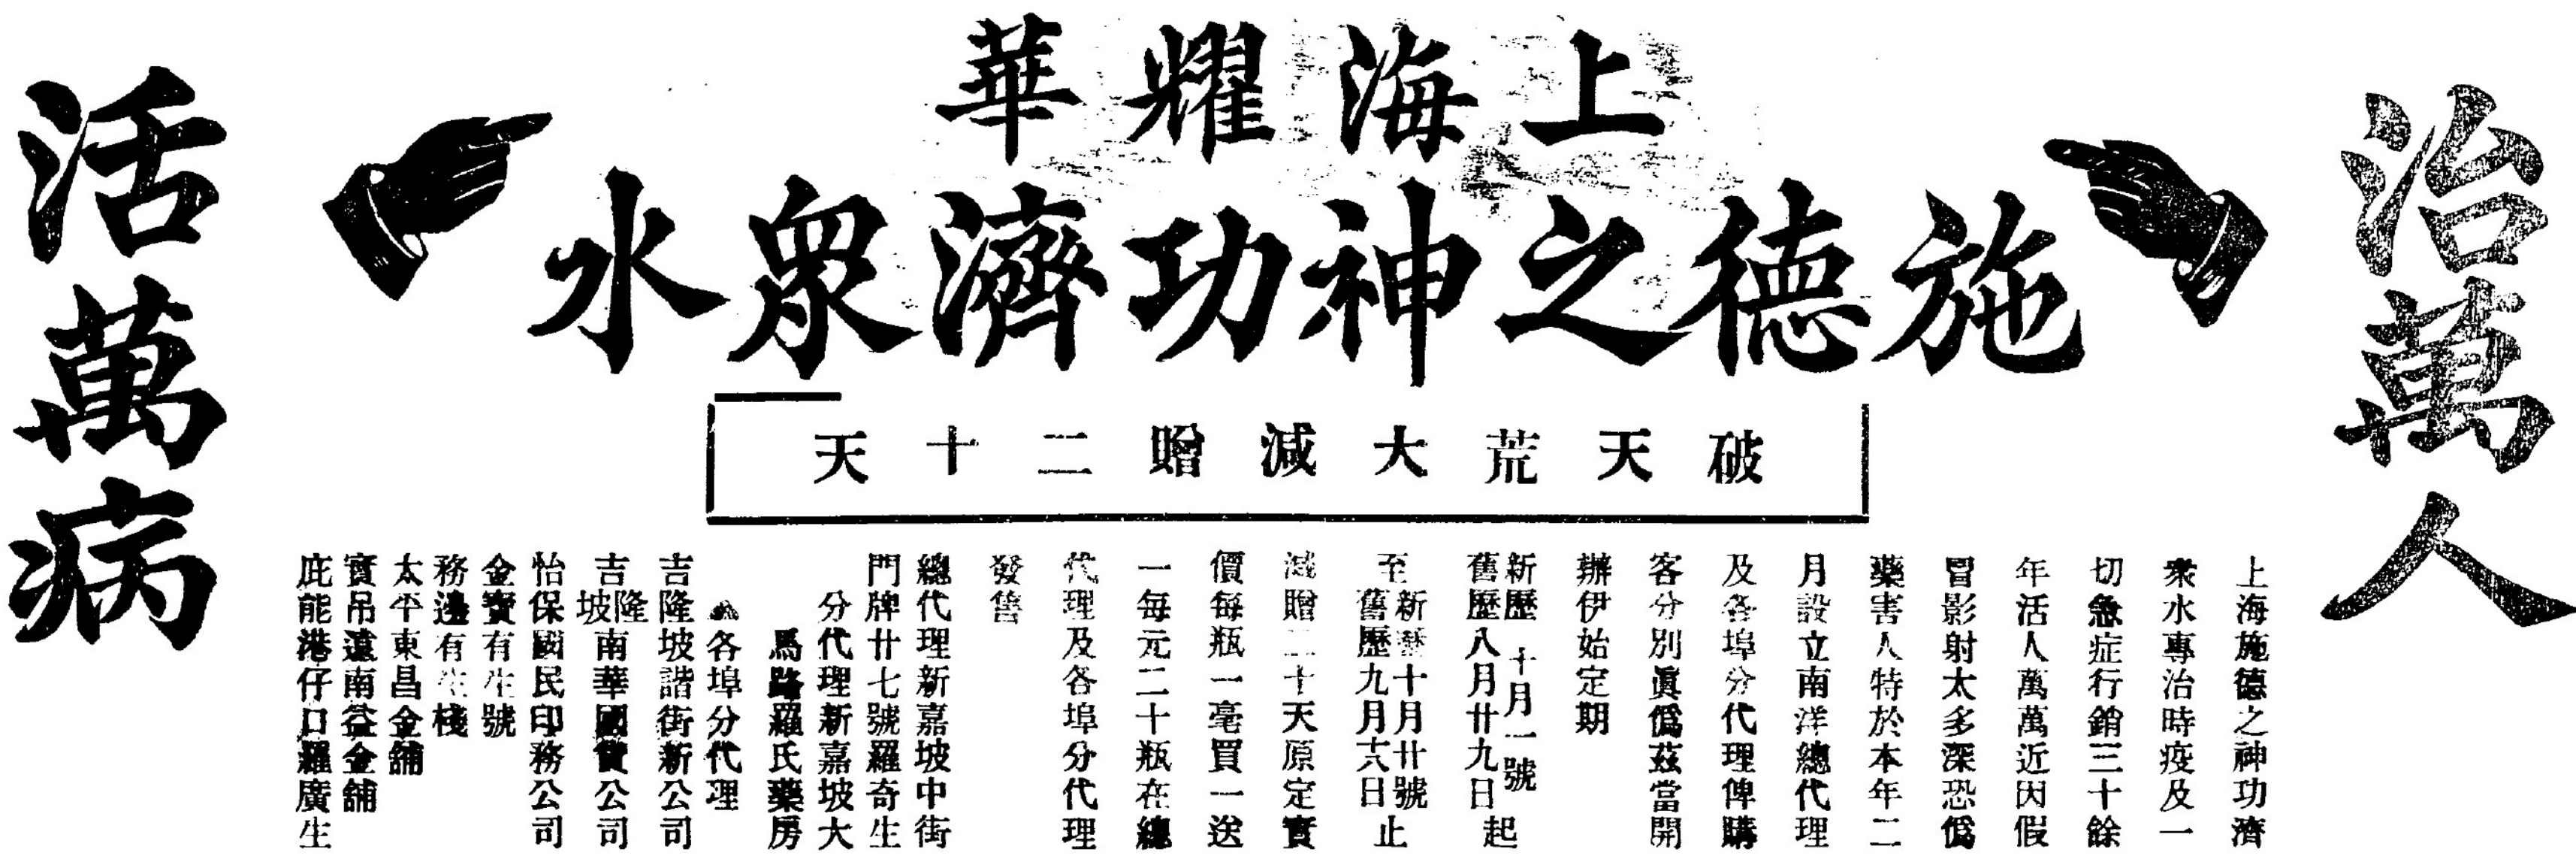 治萬人
上海耀華
施德之神功濟眾水
破天荒大減贈二十天
活萬病
上海施德之神功濟
衆水專治時疫及一
切急症行銷三十餘
年活人萬萬近因假
冒影射太多深恐僞
藥害人特於本年二
月設立南洋總代理
及各埠分代理俾購
客分別眞僞茲當開
辦伊始定期
新歷十月一號
舊歷八月廿九日起
新歷十月廿號
至舊歷九月十六日止
減贈二十天原定實
價每瓶一毫買一送
一每元二十瓶在總
代理及各埠分代理
發售
總代理新嘉坡中街
門牌廿七號羅奇生
分代理新嘉坡大
馬路羅氏藥房
各埠分代理
吉隆坡諧街新公司
吉隆坡南華國貨公司
怡保國民印務公司
金寶有生號
務邊有生棧
太平東昌金舖
實吊遠南益金舖
庇能港仔口羅廣生